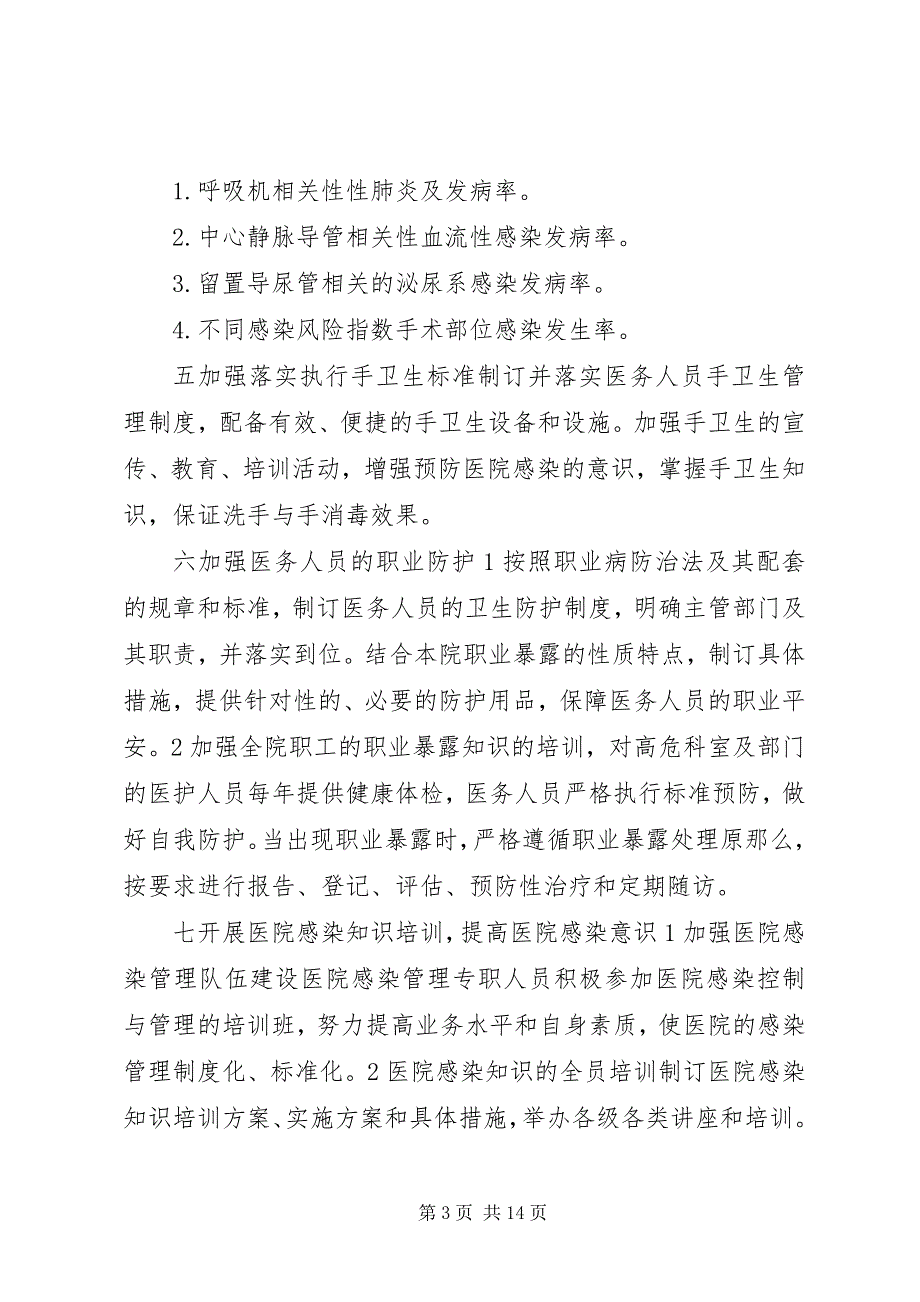 1.呼吸机相关性性肺炎及发病率。
2.中心静脉导管相关性血流性感染发病率。
3.留置导尿管相关的泌尿系感染发病率。
4.不同感染风险指数手术部位感染发生率。
五加强落实执行手卫生标准制订并落实医务人员手卫生管
理制度，配备有效、便捷的手卫生设备和设施。加强手卫生的宣
传、教育、培训活动，增强预防医院感染的意识，掌握手卫生知
识，保证洗手与手消毒效果。
六加强医务人员的职业防护 1 按照职业病防治法及其配套
的规章和标准，制订医务人员的卫生防护制度，明确主管部门及
其职责，并落实到位。结合本院职业暴露的性质特点，制订具体
措施，提供针对性的、必要的防护用品，保障医务人员的职业平
安。2 加强全院职工的职业暴露知识的培训，对高危科室及部门
的医护人员每年提供健康体检，医务人员严格执行标准预防，做
好自我防护。当出现职业暴露时，严格遵循职业暴露处理原那么，
按要求进行报告、登记、评估、预防性治疗和定期随访。
七开展医院感染知识培训，提高医院感染意识 1 加强医院感
染管理队伍建设医院感染管理专职人员积极参加医院感染控制
与管理的培训班，努力提高业务水平和自身素质，使医院的感染
管理制度化、标准化。2 医院感染知识的全员培训制订医院感染
知识培训方案、实施方案和具体措施，举办各级各类讲座和培训。
第 3 页 共 14 页